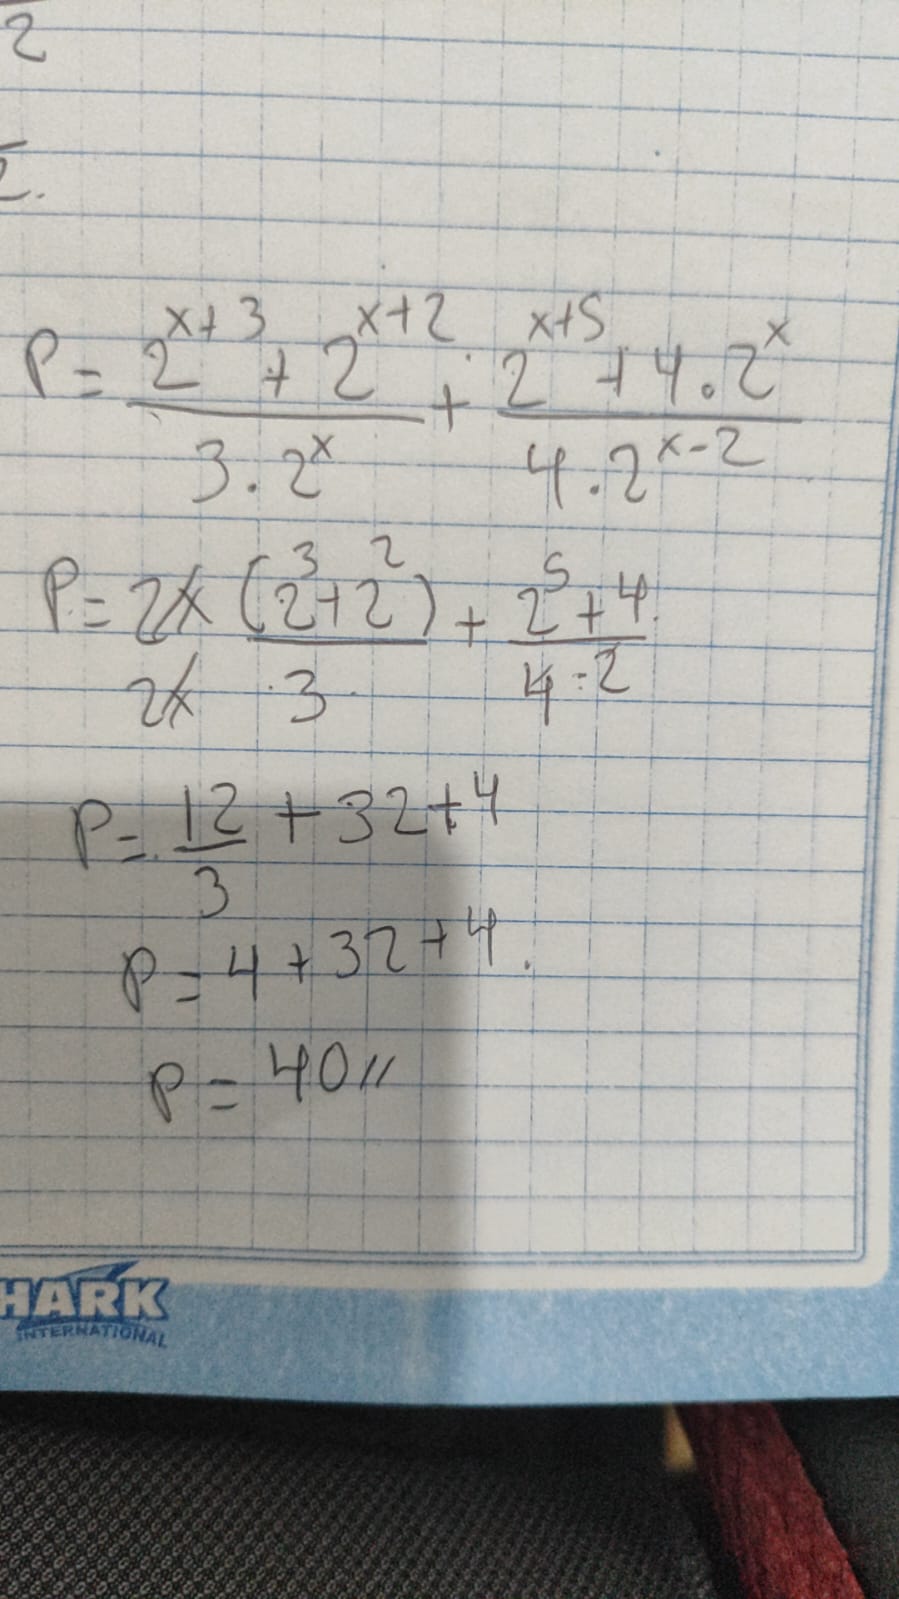 2
2.
P = (2^(x+3) + 2^(x+2))/(3 . 2^x) + (2^(x+5) + 4 . 2^x)/(4 . 2^(x-2))
P = 2x (2^3 + 2^2)/2x . 3 + (2^5 + 4)/(4 - 2)
P = 12/3 + 32 + 4
P = 4 + 32 + 4.
P = 40 //
HARK
INTERNATIONAL